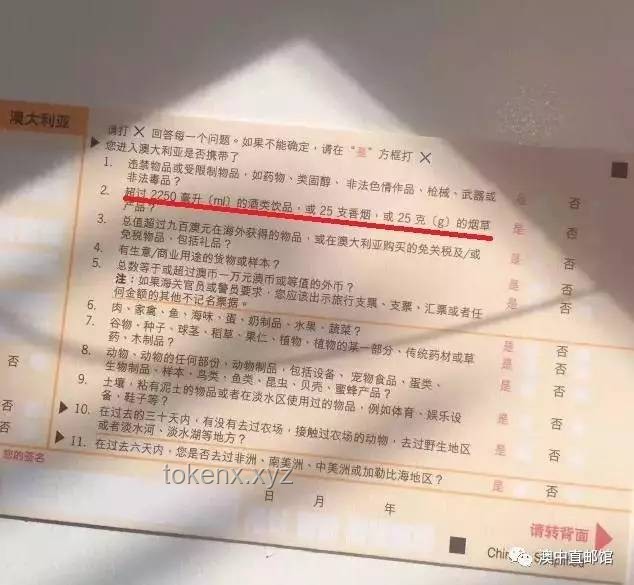 澳大利亚
请打 X 回答每一个问题。如果不能确定，请在“是”方框打 X
▶您进入澳大利亚是否携带了
1. 违禁物品或受限制物品，如药物、类固醇、非法色情作品、枪械、武器或
非法毒品？ 是 否
2. 超过 2250 毫升（ml）的酒类饮品，或 25 支香烟，或 25 克（g）的烟草
产品？ 是 否
3. 总值超过九百澳元在海外获得的物品，或在澳大利亚购买的免关税及/或
免税物品，包括礼品？ 是 否
4. 有生意/商业用途的货物或样本？ 是 否
5. 总数等于或超过澳币一万元澳币或等值的外币？ 是 否
注：如果海关官员或警员要求，您应该出示旅行支票、支票、汇票或者任
何金额的其他不记名票据。
6. 肉、家禽、鱼、海味、蛋、奶制品、水果、蔬菜？ 是 否
7. 谷物、种子、球茎、稻草、果仁、植物、植物的某一部分、传统药材或草
药、木制品？ 是 否
8. 动物、动物的任何部份，动物制品，包括设备、宠物食品、蛋类、
生物制品、样本、鸟类、鱼类、昆虫、贝壳、蜜蜂产品？ 是 否
9. 土壤，粘有泥土的物品或者在淡水区使用过的物品，例如体育、娱乐设
备、鞋子等？ 是 否
▶10. 在过去的三十天内，有没有去过农场，接触过农场的动物，去过野生地区
或者淡水河、淡水湖等地方？ 是 否
▶11. 在过去六天内，您是否去过非洲、南美洲、中美洲或加勒比海地区？ 是 否
否
否
否
您的签名
tokenx.xyz
日 月 年
请转背面
澳中直邮馆